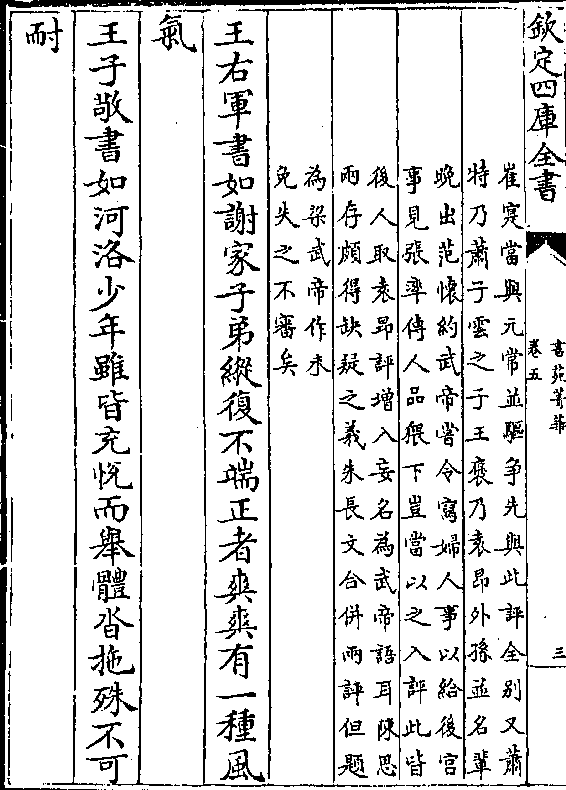 欽定四庫全書
書苑菁華
卷五
三
崔寔當與元常並驅争先與此評全别又蕭
特乃蕭子雲之子王褒乃袁昂外孫並名輩
晚出范懷約武帝嘗令寫婦人事以給後宫
事見張率傳人品猥下豈當以之入評此皆
後人取袁昂評增入妄名為武帝語耳陳思
兩存頗得缺疑之義朱長文合併兩評但題
為梁武帝作未
免失之不審矣
王右軍書如謝家子弟縱復不端正者爽爽有一種風
氣
王子敬書如河洛少年雖皆充恱而舉體沓拖殊不可
耐